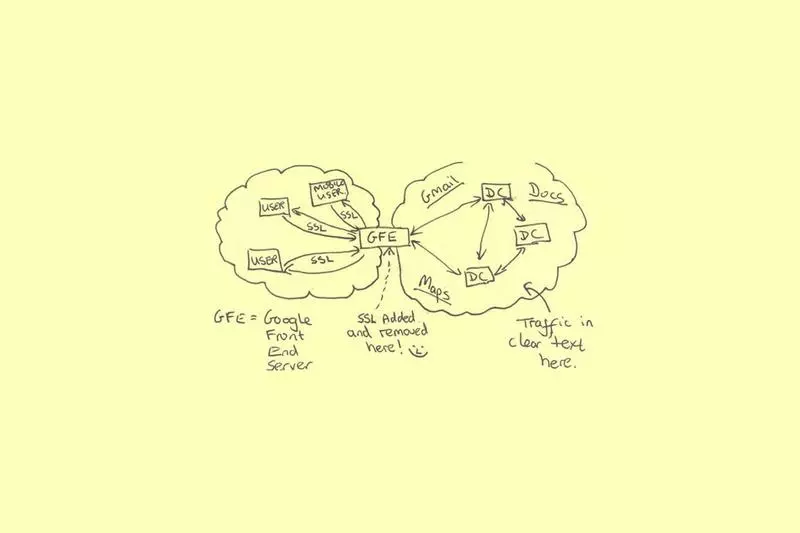 MOBILE
USER
USER
SSL
SSL
USER
SSL
GFE
Gmail
DC
Docs
DC
DC
Maps
GFE = Google
Front
End
Server
SSL Added
and removed
here!
Traffic in
clear text
here.